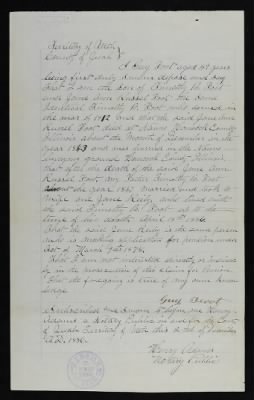 Territory of Utah
County of Juab
I Guy Foot aged 47 years
being first duly sworn depose and say
that I am the son of Timothy B. Foot
and Jane Ann Foot the same
Timothy B. Foot who served in
the year of 1812 and that the said Jane Ann
Foot died at Nauvoo Hancock County
Illinois about the month of December in the
year 1843 and was buried in the Nauvoo
burying ground Hancock County Illinois
that after the death of the said Jane Ann
Foot my father Timothy B. Foot
about the year married and took to
wife one Jane who lived with
the said Timothy B. Foot up to the
time of his death April 1886.
That the said Jane is the same person
who is making application for pension under
Act of March 9th 1878.
That I am not interested directly or indirectly
in the prosecution of this claim for Pension.
That the foregoing is true of my own know
ledge
Guy Foot
Subscribed and Sworn to before me Henry
Adams a Notary Public in and for the County
of Juab Territory of Utah this day of December
A.D. 1886.
Henry Adams
Notary Public